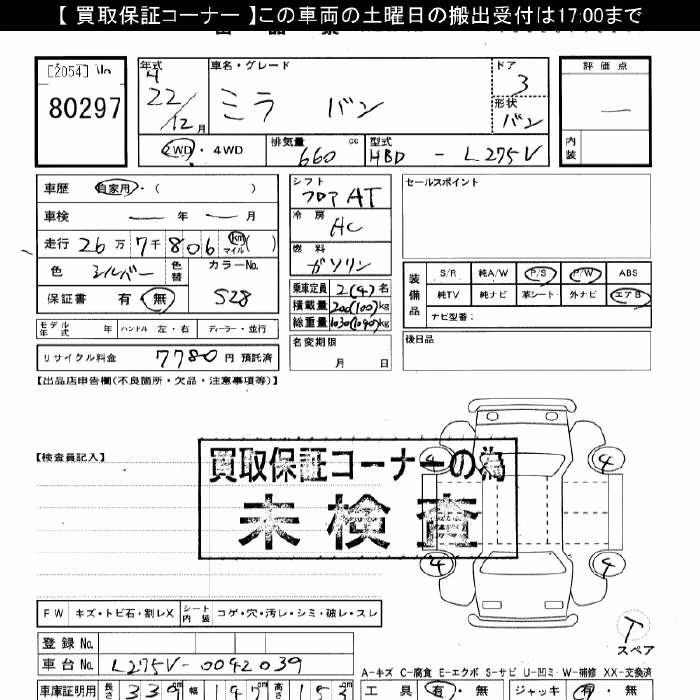 【 買取保証コーナー 】この車両の土曜日の搬出受付は17:00まで
[2054]
80297
年式 車名・グレード ドア 評価点
4 22/12月 ミラ バン 3 形状 バン ー
2WD・4WD 排気量 660 cc 型式 HBD - L275V 内装
車歴 自家用・( )
車検 ー 年 ー 月
走行 26万7千806 km マイル ( )
色 シルバー 色替 カラーNo. S28
保証書 有・無
シフト フロア AT
冷房 AC
燃料 ガソリン
乗車定員 2(4)名
積載量 200(100)kg
総重量 1030(1040)kg
名変期限 月 日
セールスポイント
装備品 S/R 純A/W P/S P/W ABS
純TV 純ナビ 革シート 外ナビ エアB
ナビ型番:
後日品
モデル年式 年 ハンドル 左・右 ディーラー・並行
リサイクル料金 7780 円 預託済
【出品店申告欄(不良箇所・欠品・注意事項等)】
【検査員記入】
買取保証コーナーの為
未検査
4 4
4 4
FW キズ・トビ石・割レX シート内装 コゲ・穴・汚レ・シミ・破レ・スレ
T スペア
登録No.
車台No. L275V-0042039
A-キズ C-腐食 E-エクボ S-サビ U-凹ミ W-補修 XX-交換済
車庫証明用 長さ 339cm 幅 147cm 高さ 153cm 工具 有・無 ジャッキ 有・無